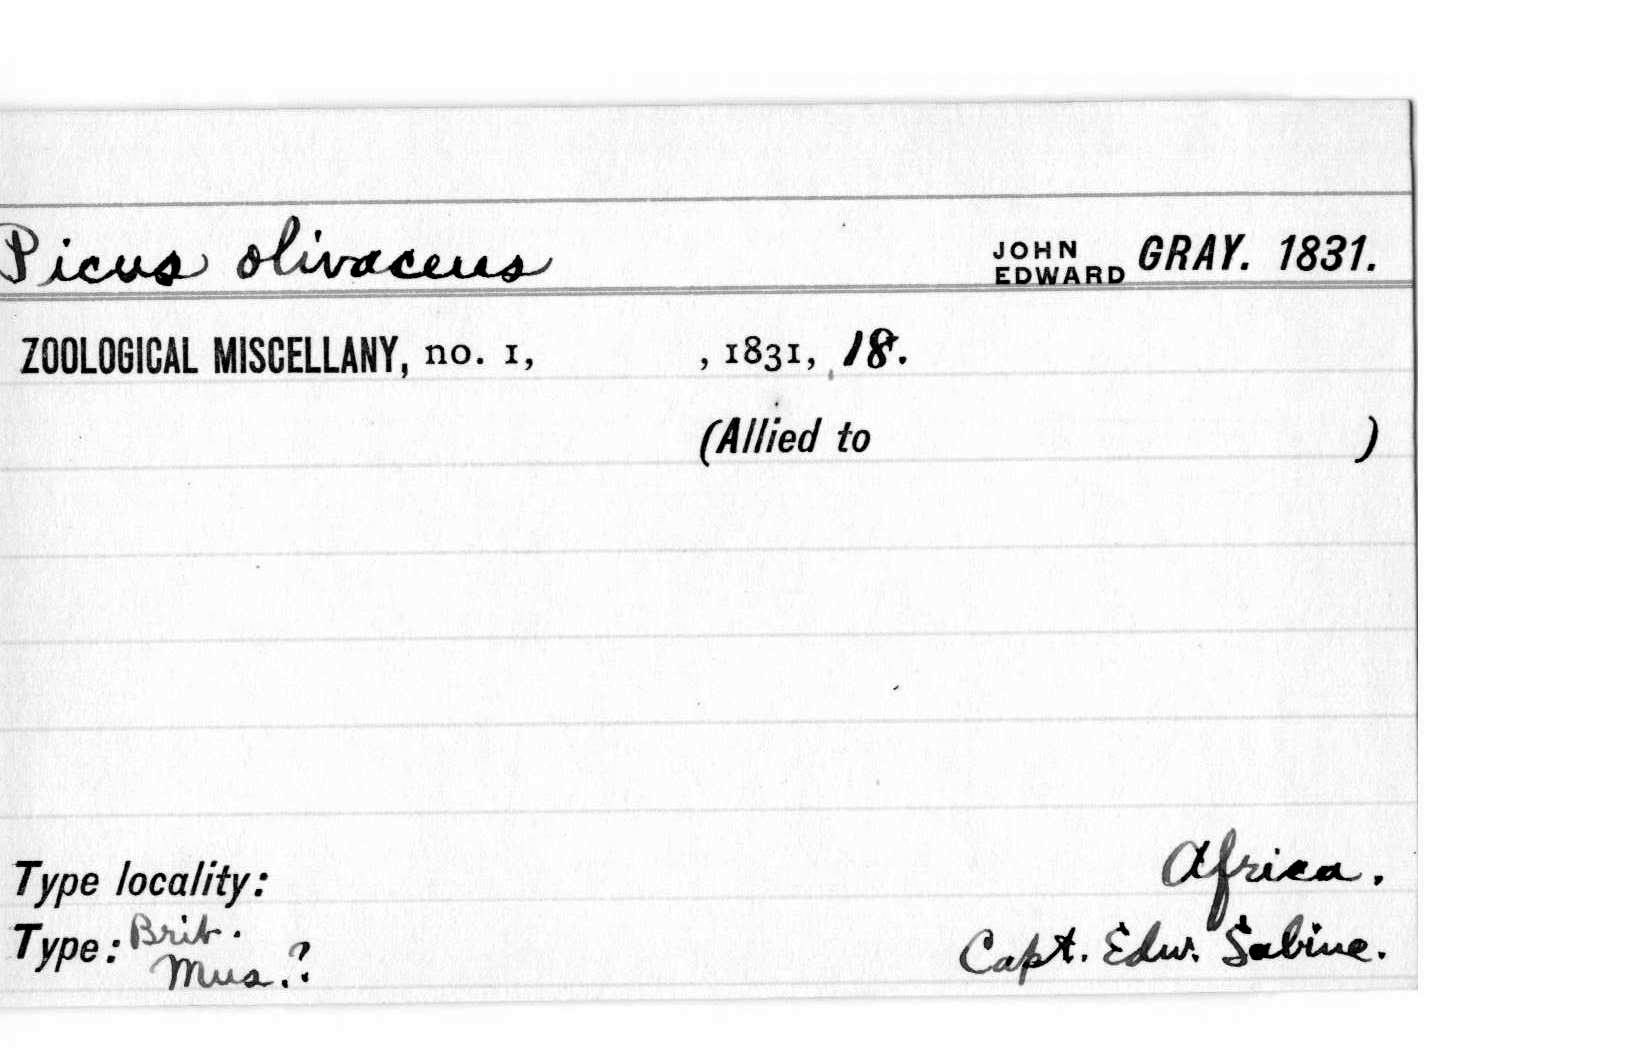 Picus olivaceus JOHN EDWARD GRAY. 1831.
ZOOLOGICAL MISCELLANY, no. 1, , 1831, 18.
(Allied to )
Type locality: Africa.
Type: Brit. Mus.? Capt. Edw. Sabine.